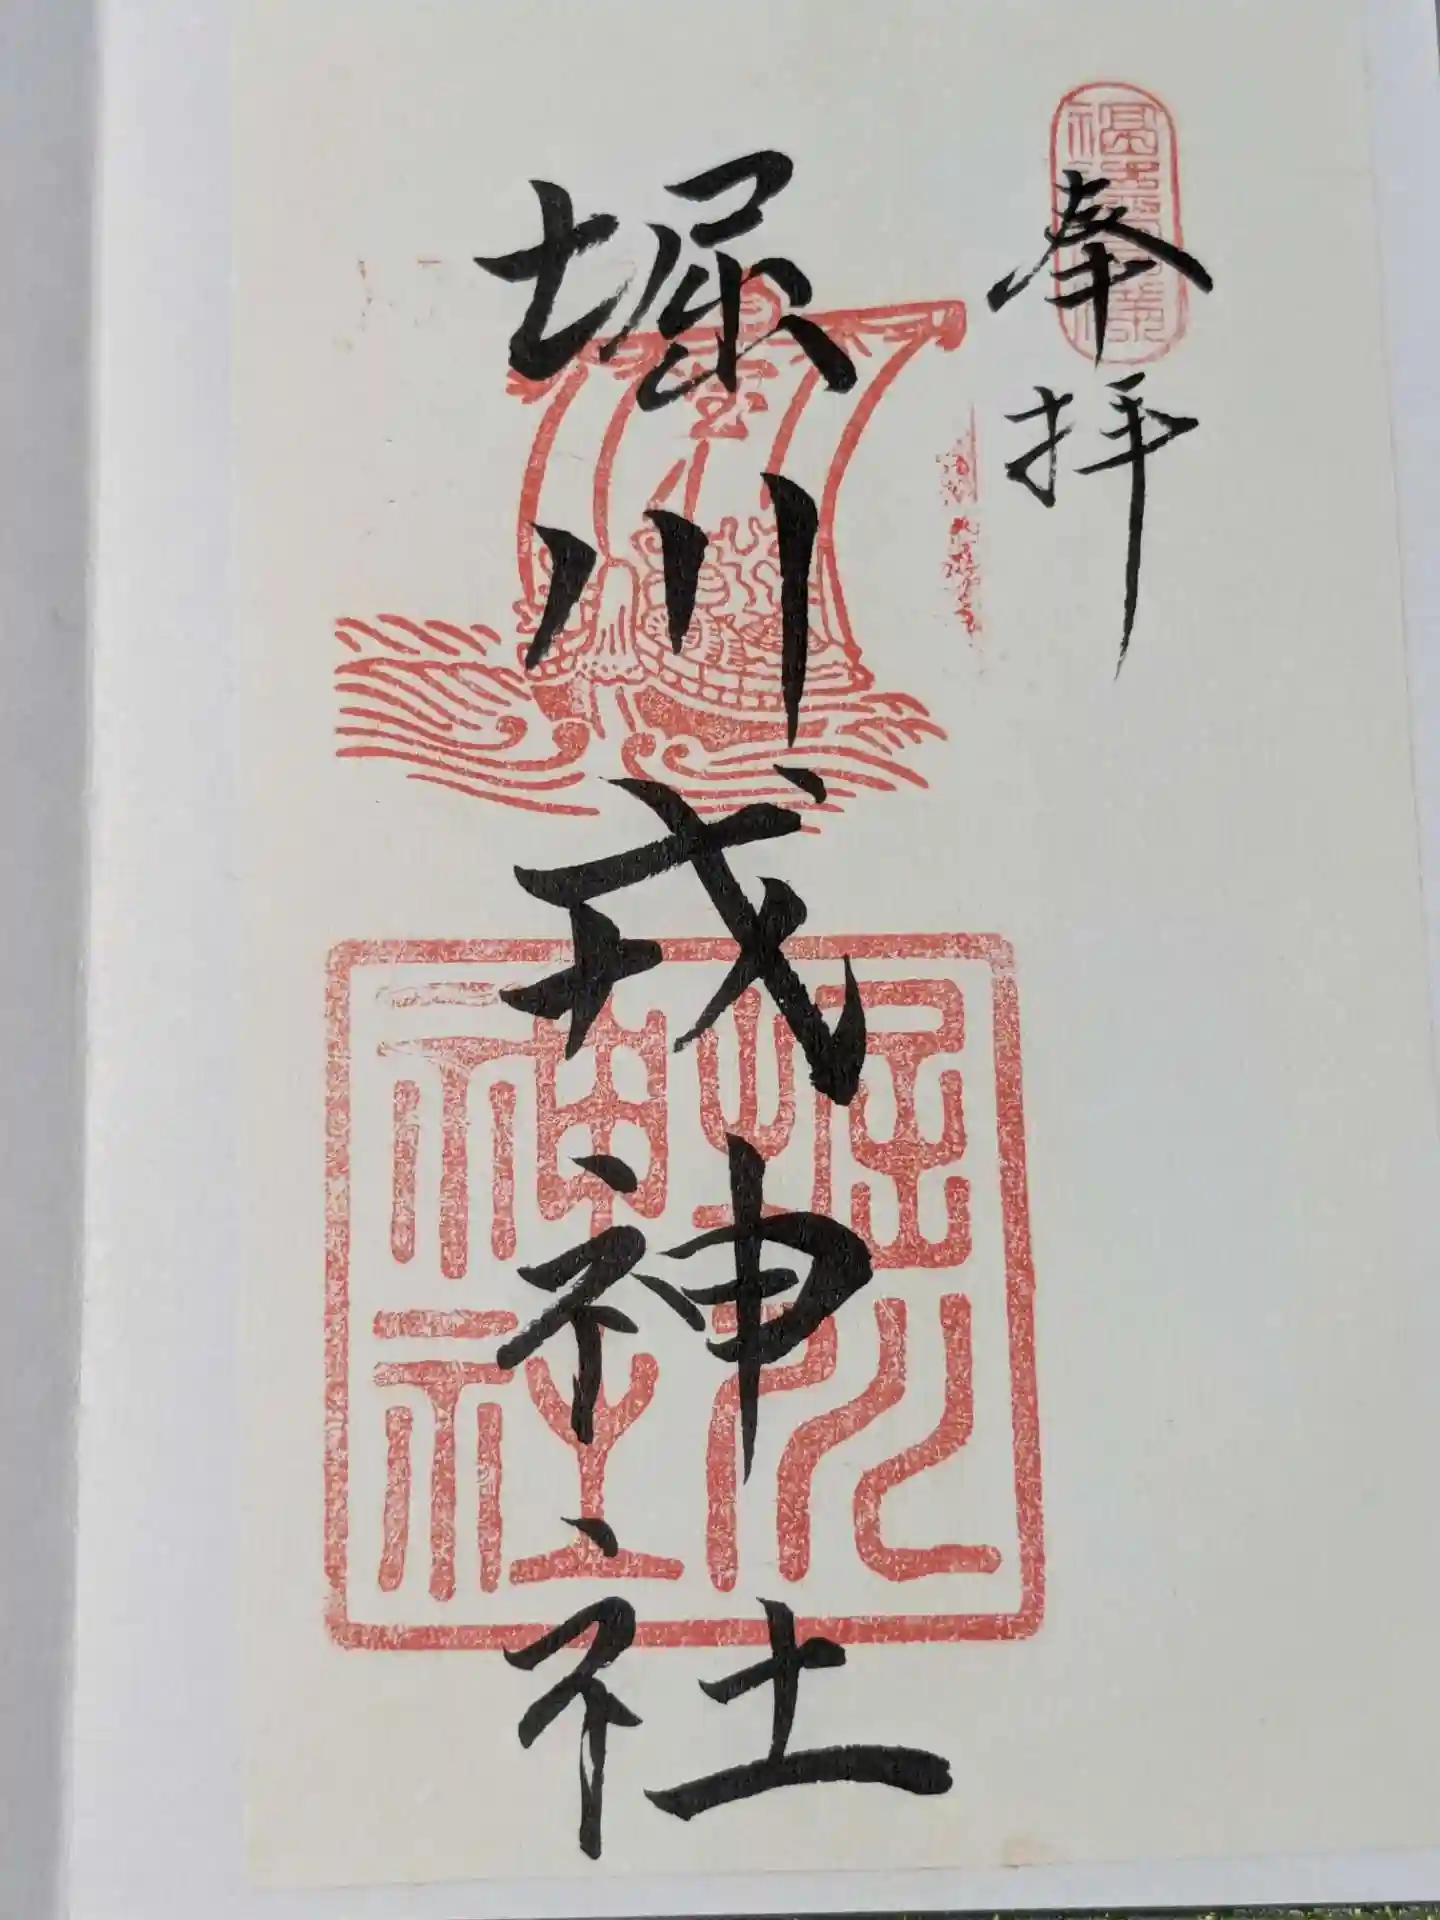 奉拝
堀川戎神社
堀川
神社
宝